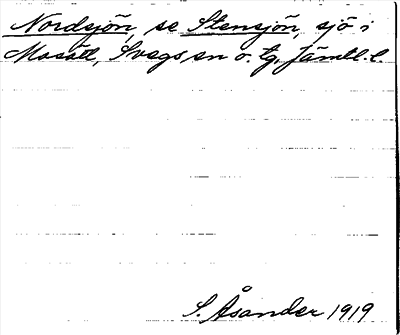 Nordsjön, se Stensjön, sjö i
Mosätt, Svegs sn o. tg, Jämtl. l.
S. Åsander 1919